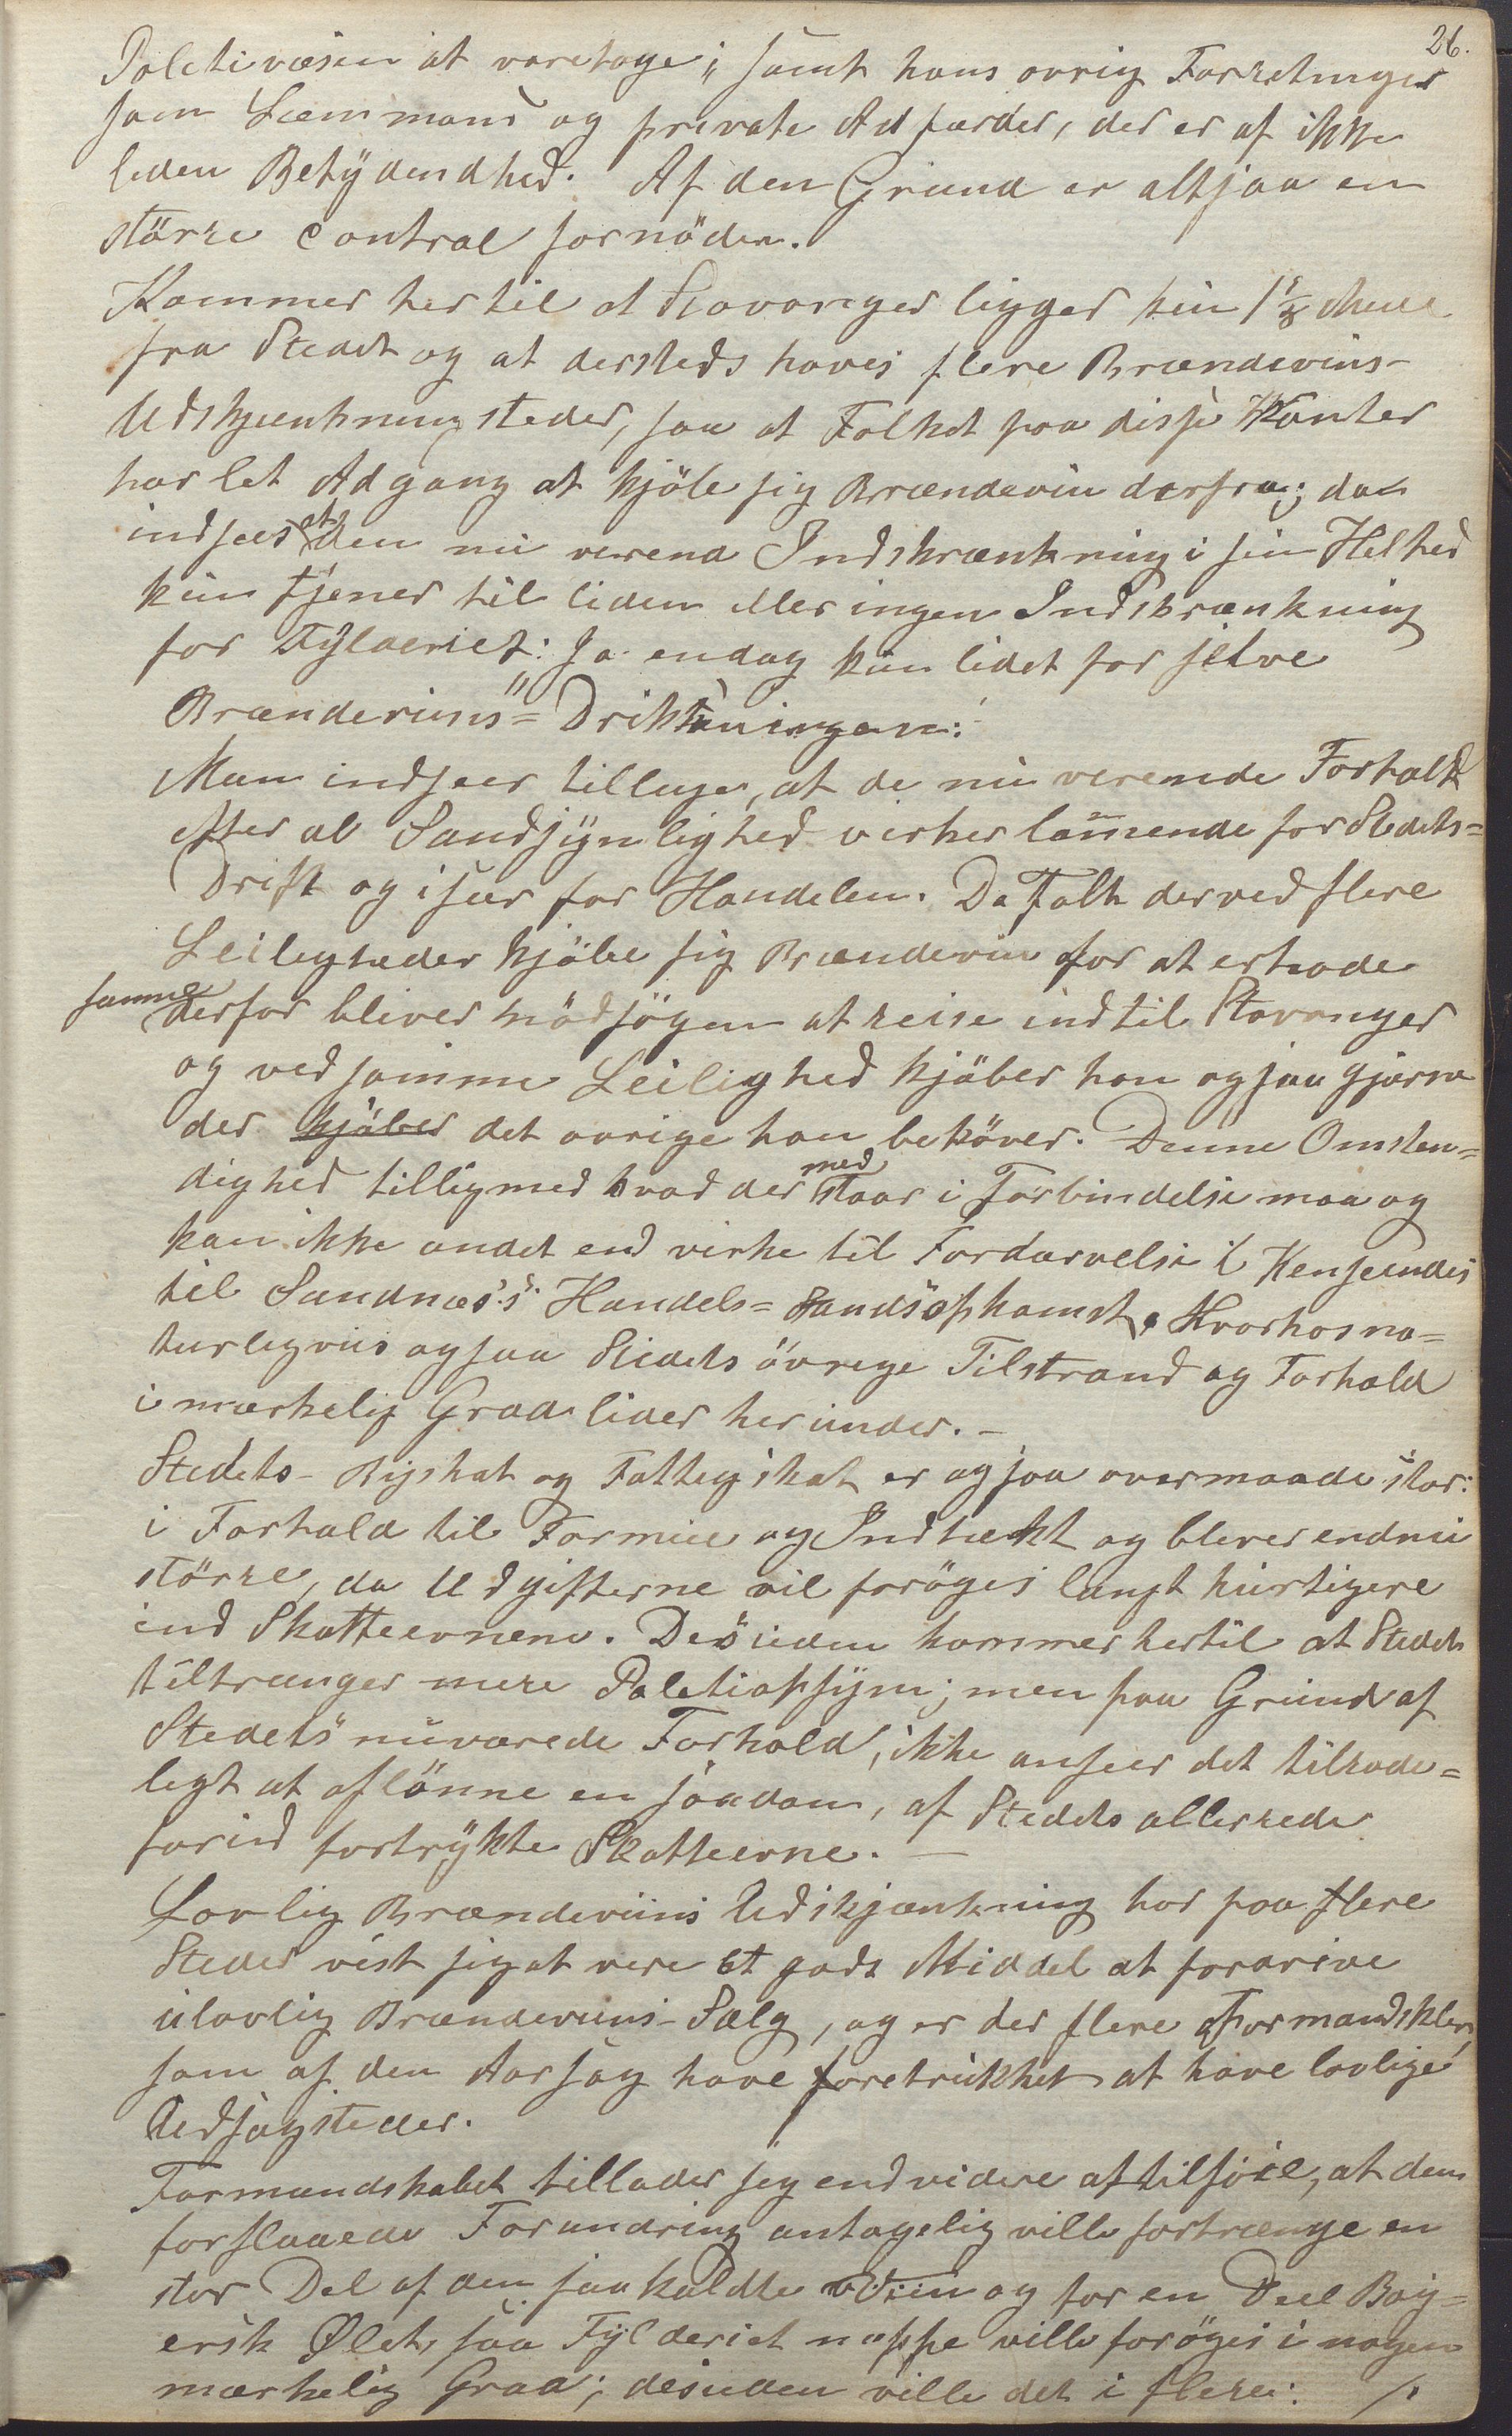 26.
Poletivæsen at varetage; samt hans øvrig Forretninger
som Lænmand og private Adfærder, der er af ikke
liden Betÿdendhed. Af den Grund er altsaa en
större Control fornöden.
Kommer hertil at Stavanger ligger kun 1 Miil
fra Stedet og at dersteds haves flere Brændevins-
Udskjænkningssteder, saa at Folket paa disse Kanter
har let Adgang at kjöbe sig Brændeviin derfra; da
indsees at den nu verend Indskrænkning i sin Helhed
kun tjener til liden eller ingen Indskrænkning
for Fÿlderiet: Ja endog kun lidet for selve
Brændeviins"= Drikkningen:
Man indseer tillige, at de nu verende Forhold
efter al Sandsÿnlighed virker lam̅ende for Stedets=
Drift og især for Handelen. Da Folk derved flere
Leiligheder kjöbe sig Brændeviin for at erholde
samme derfor bliver nödsögen at reise ind til Stavanger
og ved samme Leilighed kjöber han ogsaa gjærne
der kjöber det øvrige han behöver. Denne Omsten=
dighed tilligmed hvad der med staar i Forbindelse maa og
kan ikke andet end virke til Fordærvelse i Henseendes
til Sandnæs's Handels= Stands opkomst, Hvorhos na=
turligviis ogsaa Stedets övrige Tilstrand og Forhold
i mærkelig Grad lider herunder. -
Stedets - Byskat og Fattigskat er ogsaa overmaade stor:
i Forhold til Formue og Indtækt og bliver endnu
större, da Udgifterne vil foröges langt hurtigere
end Skatteevnene. Desuden kommer hertil at Stedet
tiltrænger mere Poletiopsÿn; men paa Grund af
Stedets nuværede Forhold, ikke anseer det tilraade=
ligt at aflönne en saadan, af Stedets allerrede
forud fortrÿkte Skatteevne. —
Lovlig Brændeviins Udskjænkning har paa flere
Steder vist sig at være et godt Middel at fordrive
ulovlig Brændeviins-Salg, og er der flere Formandskber,
som af den Aarsag have foretrukket at have lovlige
Udsagsteder.
Formandskabet tillader sig endvidere at tilföie, at den
forslaaede Forandring antagelig ville fortrænge en
stor Del af den saakaldte Viin og for en Deel Bay=
ersk Ølet, saa Fÿlderiet neppe ville foröges i nogen
mærkelig Grad; desuden ville det i flere: /.